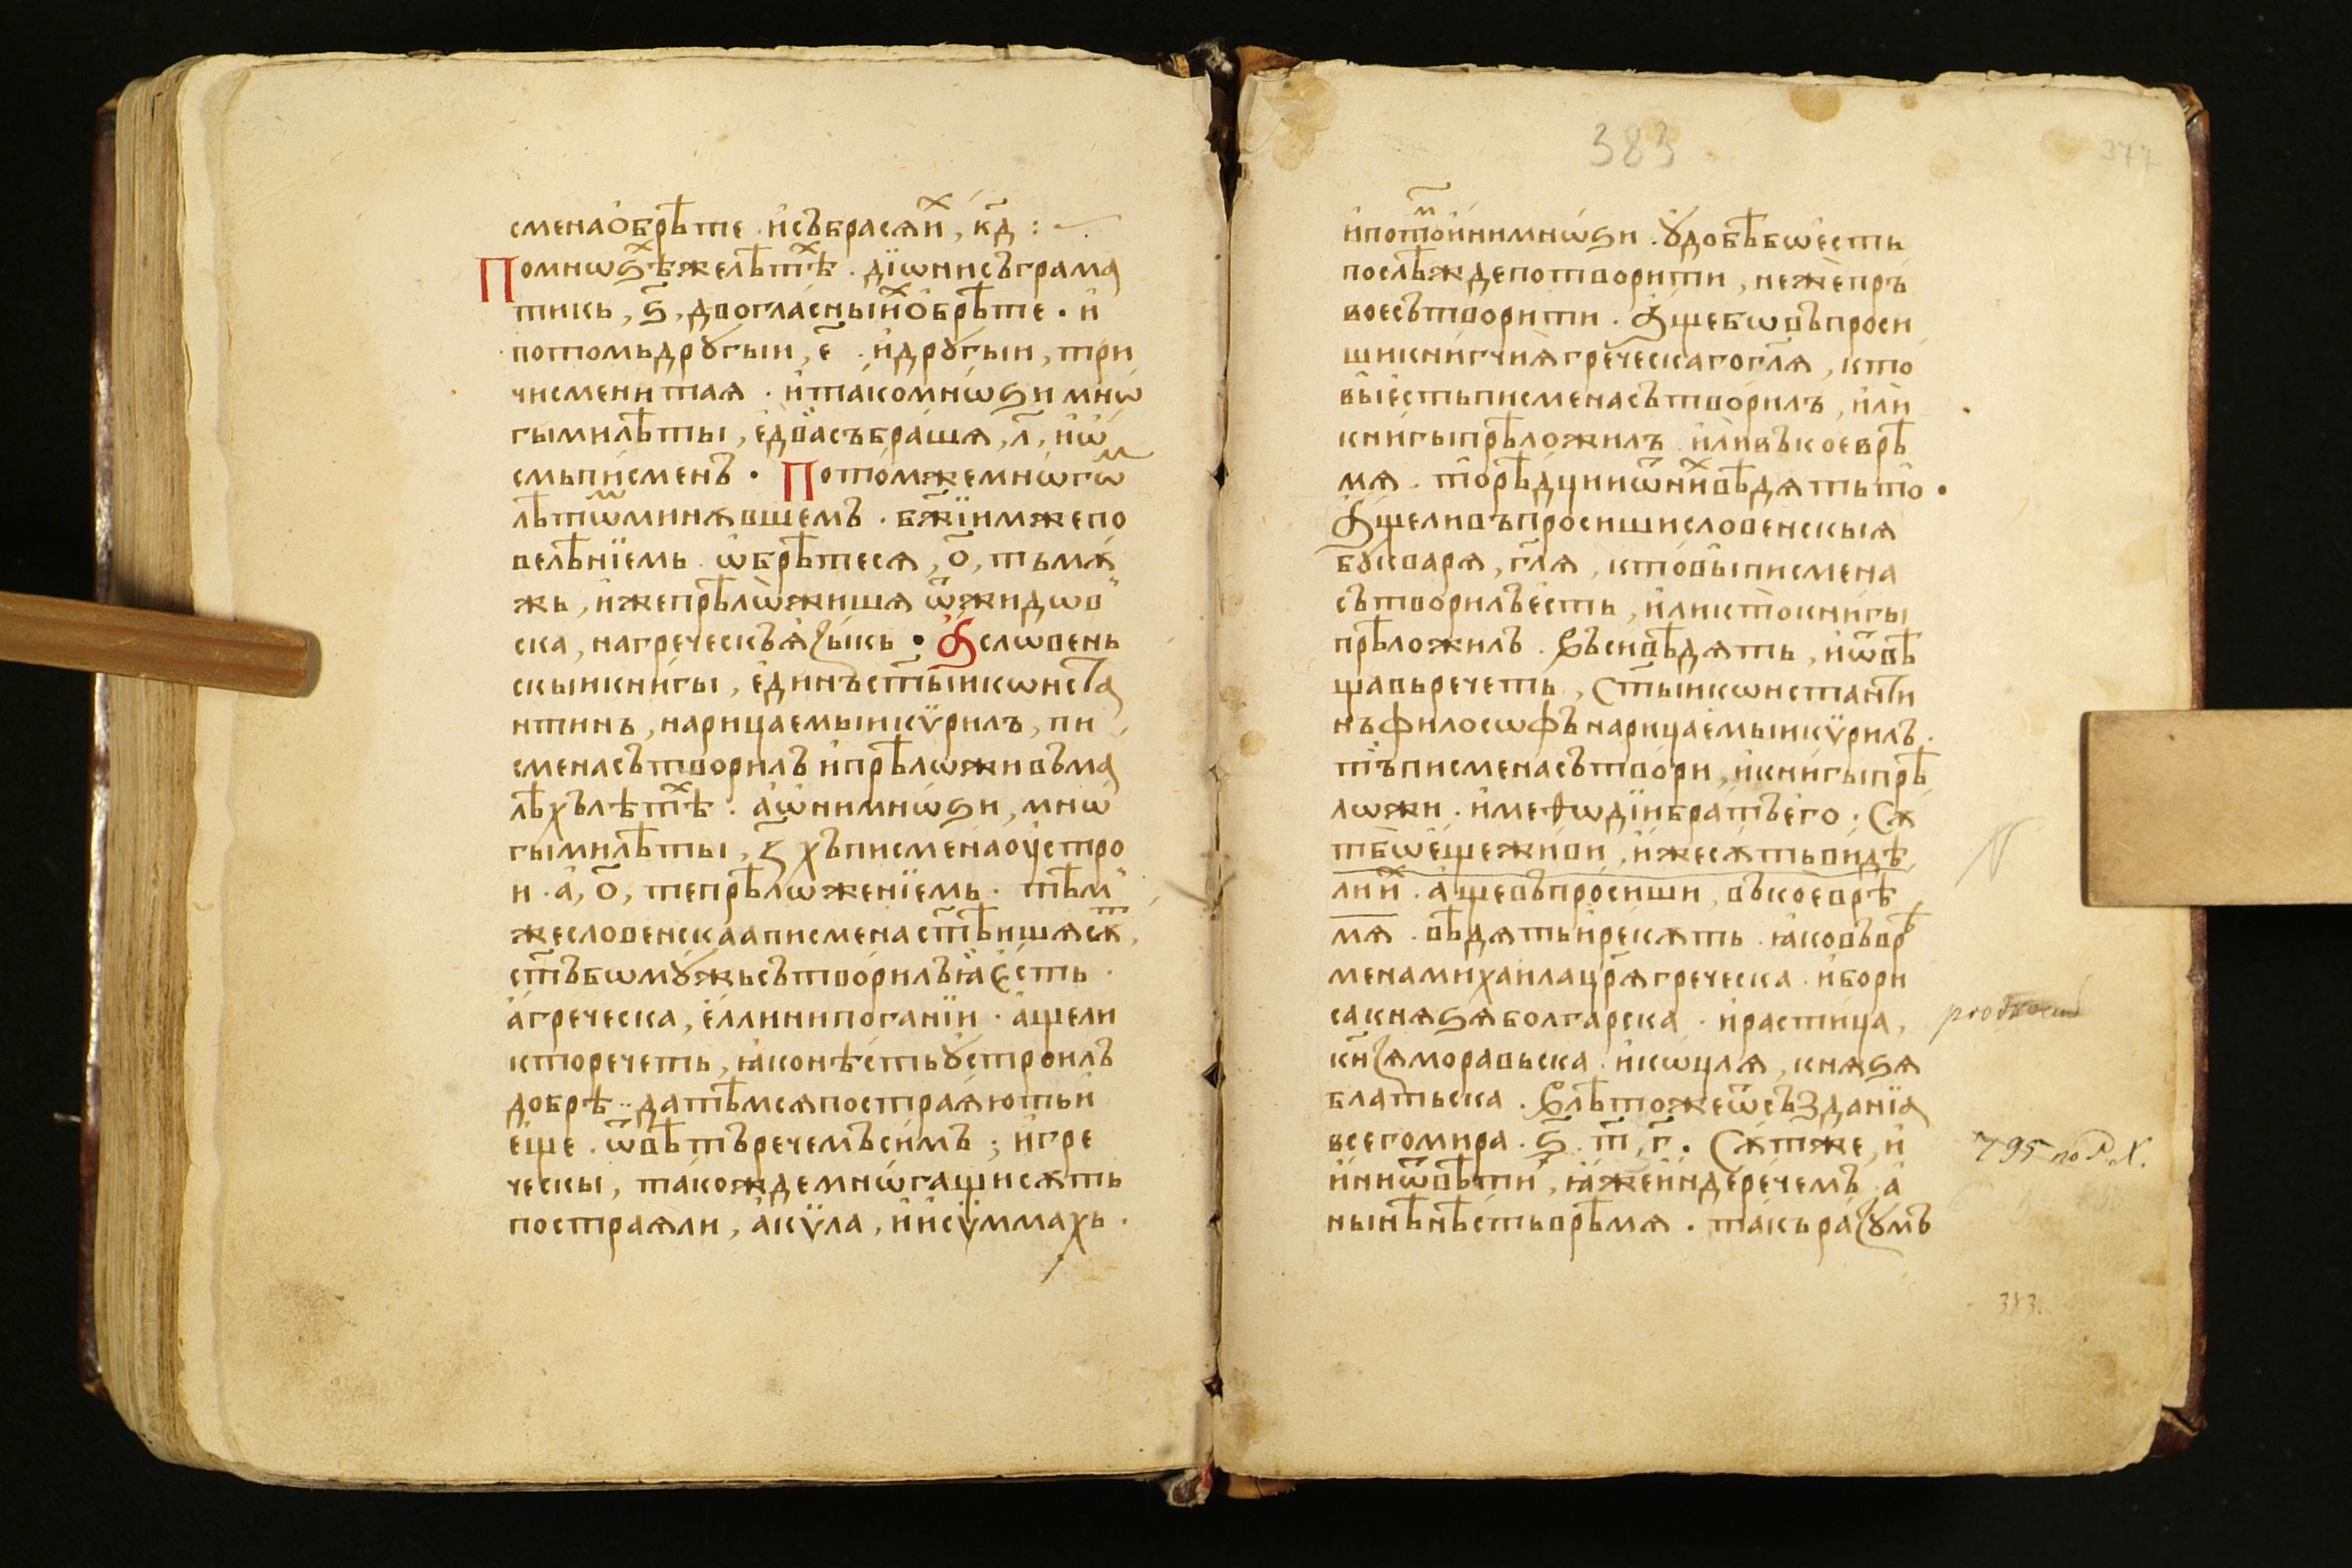 сменаѻбрѣте · исъбрасѧи҆ⷯ , к҃д :
Помнѡѕѣⷯжелѣтѣⷯ · дїѡнисъграма
тикь , ѕ҃ , двогласныиⷯѻбрѣте · и҆
потомьдрꙋгыи , є҃ · и҆дрꙋгыи , три
чисменитаѧ · и҆такомнѡѕи мнѡ
гымилѣты , є҆двасъбрашѧ , л҃ , иѡ
смьписменъ · Потомжемнѡгѡⷨ
лѣтѡⷨминѫвшемъ · бж҃їимжепо
велѣнїемь ѡбрѣтесѧ , о҃ , тьмѫ
жь , и҆жепрѣлѡжишѧ ѿжидѡв
ска , нагреческъѧ҆зыкь · Ⰰселѡвень
скыикнигы , є҆динъст҃ыикѡнста
нтинъ , нарицаемыикѵрилъ , пи
сменасътворилъ и҆прѣлѡживъма
лѣхълѣтѣⷯ · а҆ѡнимнѡѕи , мнѡ
гымилѣты , з҃ хъписменаоустро
и · а҆ , о҃ , тепрѣлѡженїемь · тѣм
жесловенскаапис҆менаст҃ѣишѧсѫⷮ ,
ст҃ъбѡмꙋжьсътворилъꙗ҆є҆сть ·
а҆греческа , є҆ллинипоганїи · а҆щели
кторечеть , ꙗ҆конѣстьꙋстроилъ
добрѣ · датѣмсѧпостраѧютьи
еще · ѿвѣтъречемъсимъ ; и҆гре
ческы , такождемнѡгащисѫть
постраѧли , а҆кѵла , и҆исѵммахь ·
383
377
и҆потоⷨи҆нимнѡѕи · ꙋдобѣбѡесть
послѣждепотворити , нежепръ
воесътворити · Ащебѡвъпроси
шикнигчиѧгреческагогл҃ѧ , кто
выестьписменасътворилъ , и҆ли
книгыпрѣложилъ и҆ливъкоеврѣ
мѧ · торѣдциѿниⷯвѣдѧтьто ·
Ащеливъпросишисловенскыѧ
бꙋкварѧ , гл҃ѧ , ктовыписмена
сътворилъесть , и҆ликтокнигы
прѣложилъ · Въсивѣдѧть , и҆ѿвѣ
щавьречеть , Ст҃ыикѡнстанти
нъфилосѡфънарицаемыикѵрилъ ·
тъписменасътвори , и҆книгыпрѣ
лѡжи · и҆меѳѡдїибратъего · Сѫ
тбѡещеживи , и҆жесѫтьвидѣ
лииⷯ · а҆щевъпросиши , въкоеврѣ
мѧ · вѣдѧтьирекѫть · ꙗ҆ковъвр
менамихаилацр҃ѧгреческа · и҆бори
сакнѧѕѧболгарска · и҆растица ,
кн҃ѕѧморавьска · и҆коцлѧ , кнѧѕѧ
блатьска · Влѣтожеѿсъзданїа
всегомира · ѕ҃ т҃ , г҃ · Сѫтже , и҆
и҆ниѿвѣти , ꙗ҆жеиндеречемъ · а҆
нынѣнѣстьврѣмѧ · такъразꙋмъ
795 по Р. Х.
383.